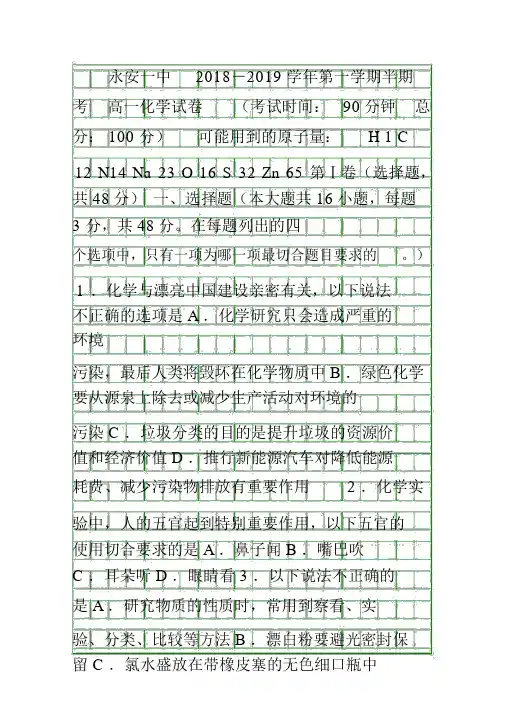 永安一中 2018－2019 学年第一学期半期
考 高一化学试卷 （考试时间： 90 分钟 总
分： 100 分） 可能用到的原子量： H 1 C
12 N14 Na 23 O 16 S 32 Zn 65 第Ⅰ卷（选择题，
共 48 分） 一、选择题（本大题共 16 小题，每题
3 分，共 48 分。在每题列出的四
个选项中，只有一项为哪一项最切合题目要求的 。）
1 ．化学与漂亮中国建设亲密有关，以下说法
不正确的选项是 A ．化学研究只会造成严重的
环境
污染，最后人类将毁坏在化学物质中 B ．绿色化学
要从源泉上除去或减少生产活动对环境的
污染 C ．垃圾分类的目的是提升垃圾的资源价
值和经济价值 D ．推行新能源汽车对降低能源
耗费、减少污染物排放有重要作用 2 ．化学实
验中，人的五官起到特别重要作用，以下五官的
使用切合要求的是 A ．鼻子闻 B ．嘴巴吹
C ．耳朵听 D ．眼睛看 3 ．以下说法不正确的
是 A ．研究物质的性质时，常用到察看、实
验、分类、比较等方法 B ．漂白粉要避光密封保
留 C ．氯水盛放在带橡皮塞的无色细口瓶中